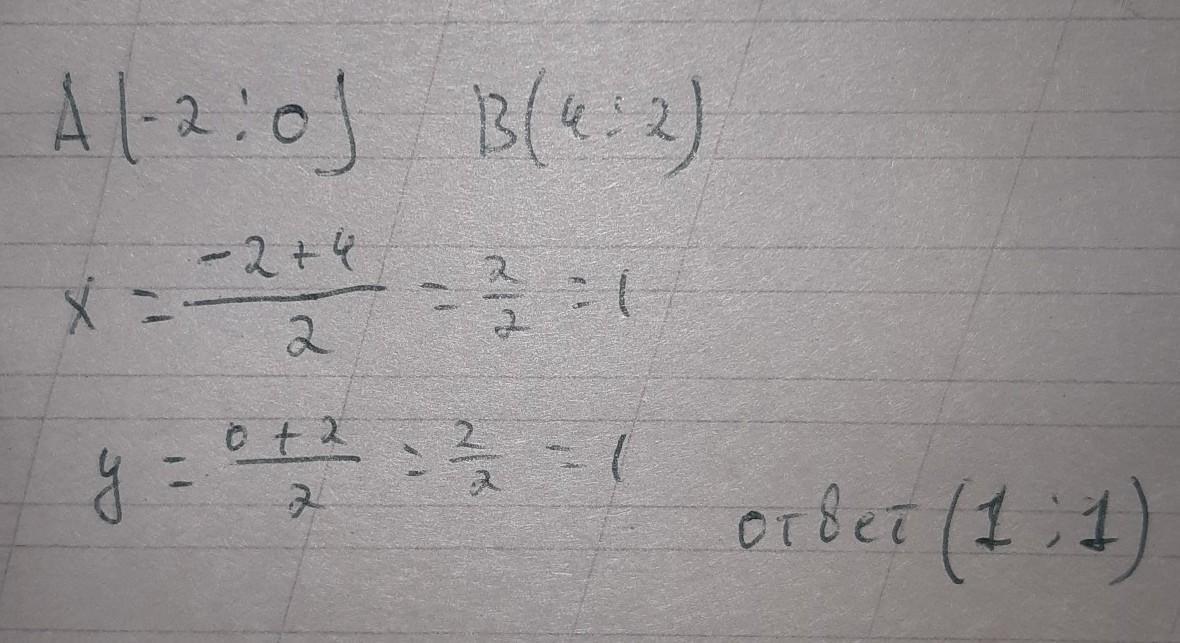 A(-2;0) B(4:2)
x = (-2+4)/2 = 2/2 = 1
y = (0+2)/2 = 2/2 = 1
ответ (1;1)